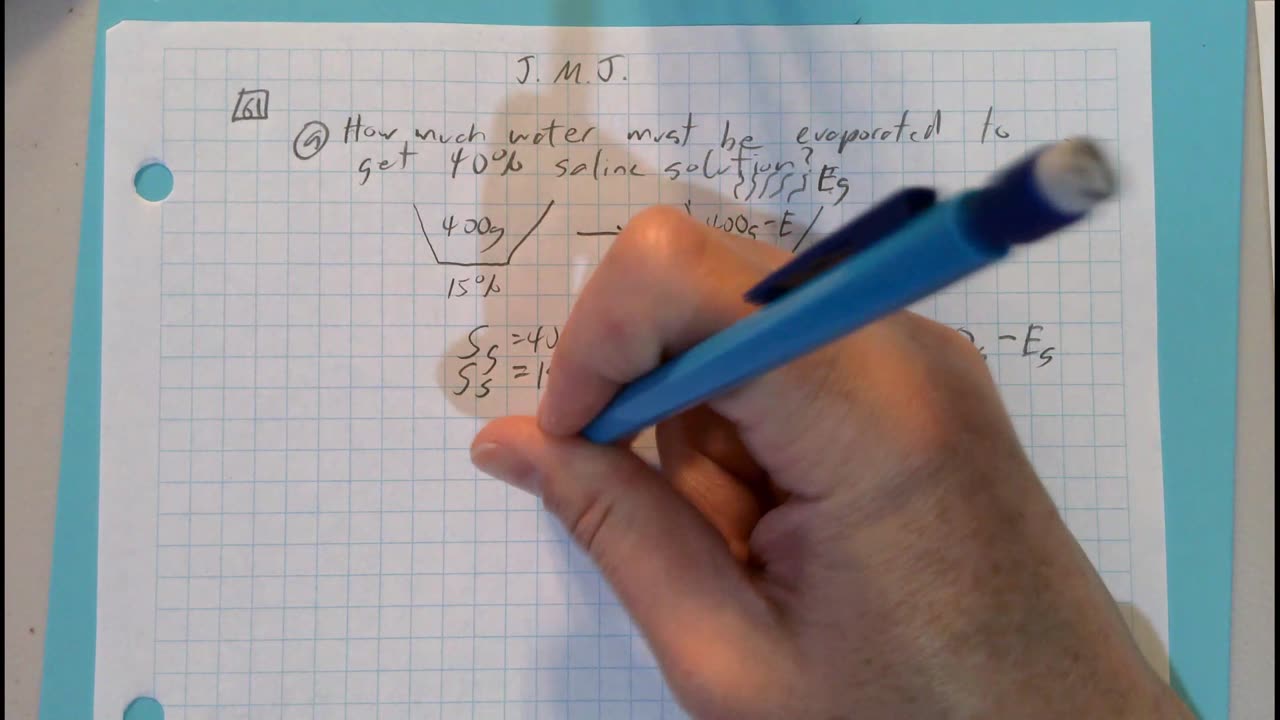 J. M. J.
61
ⓐ How much water must be evaporated to
get 40% saline solution?
Eg
400g 400g-E
15%
Sg =40 -Eg
Ss =1